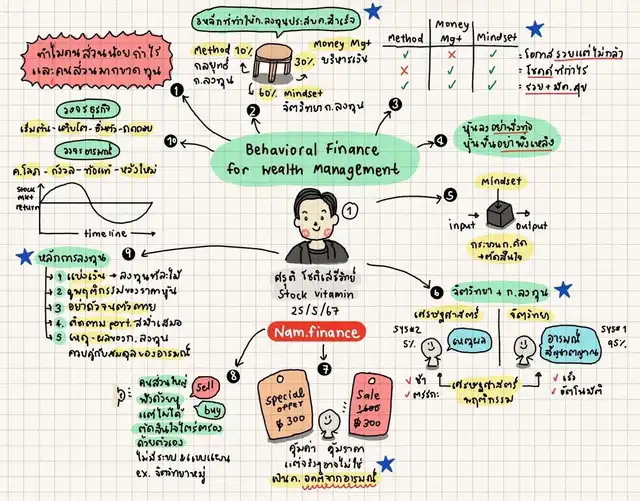 ทำไมคนส่วนน้อยกำไร
และคนส่วนมากขาดทุน
1
3หลักที่ทำให้ก.ลงทุนประสบค.สำเร็จ
Method 10%
กลยุทธ์
ก.ลงทุน
Money Mgt
30% บริหารเงิน
60% mindset
จิตวิทยาก.ลงทุน
2
Method
Money
Mgt
Mindset
✓ ✗ ✓ = โอกาสรวยแต่ไม่กล้า
✗ ✓ ✓ = โชคดีที่กำไร
✓ ✓ ✓ = รวย+มีค.สุข
3
Behavioral Finance
for Wealth Management
4
หุ้นลงอย่าพึ่งท้อ
หุ้นขึ้นอย่าพึ่งเหลิง
5
mindset
input
output
กระบวนก.คิด
+ตัดสินใจ
6
จิตวิทยา + ก.ลงทุน
เศรษฐศาสตร์
จิตวิทยา
SYS#2
5%
เหตุผล
อารมณ์
สัญชาตญาณ
SYS#1
95%
✓ ช้า
✓ ตรรกะ
เศรษฐศาสตร์
พฤติกรรม
✓ เร็ว
✓ อัตโนมัติ
7
Special
offer
฿ 300
Sale
1600
฿ 300
คุ้มค่า คุ้มราคา
แต่จริงๆอาจไม่ใช่
เป็นค. อคติจากอารมณ์
8
คนส่วนใหญ่
แต่ไม่ได้
ตัดสินใจไตร่ตรอง
ด้วยตัวเอง
ไม่มีระบบ & แบบแผน
ex. จิตวิทยาหมู่
sell
buy
9
หลักการลงทุน
1 แบ่งเงิน → ลงทุนทีละไม้
2 ดูพฤติกรรมของราคาหุ้น
3 อย่าถัวจนตัวตาย
4 ติดตาม port. สม่ำเสมอ
5 เหตุ-ผลของก. ลงทุน
ควบคู่กับสมดุลของอารมณ์
10
วงจรธุรกิจ
เริ่มต้น-เติบโต-อิ่มตัว-ถดถอย
วงจรอารมณ์
ค.โลภ - กังวล - ท้อแท้ - หวังใหม่
Stock
mkt
return
timeline
1
Stock vitamin
25/5/67
Nam.finance